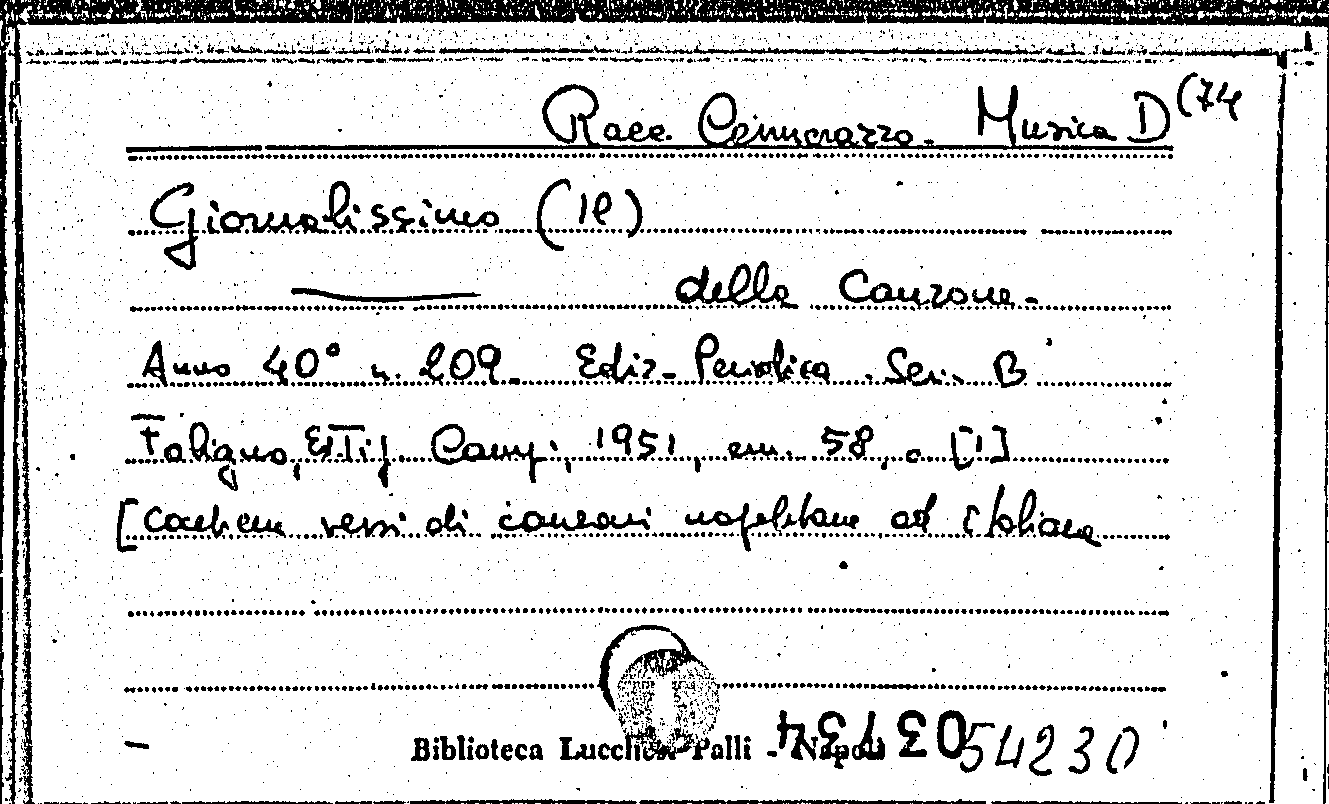 Racc. Cennerazzo. Musica D (74
Giornalissimo (Il)
della Canzone.
Anno 40° n. 209. Ediz. Periodica. Ser. B
Foligno, Et.Tip. Campi, 1951, cm. 58, c [1]
[contiene versi di canzoni napoletane ed italiane
Biblioteca Lucchesi Palli - Napoli
54230